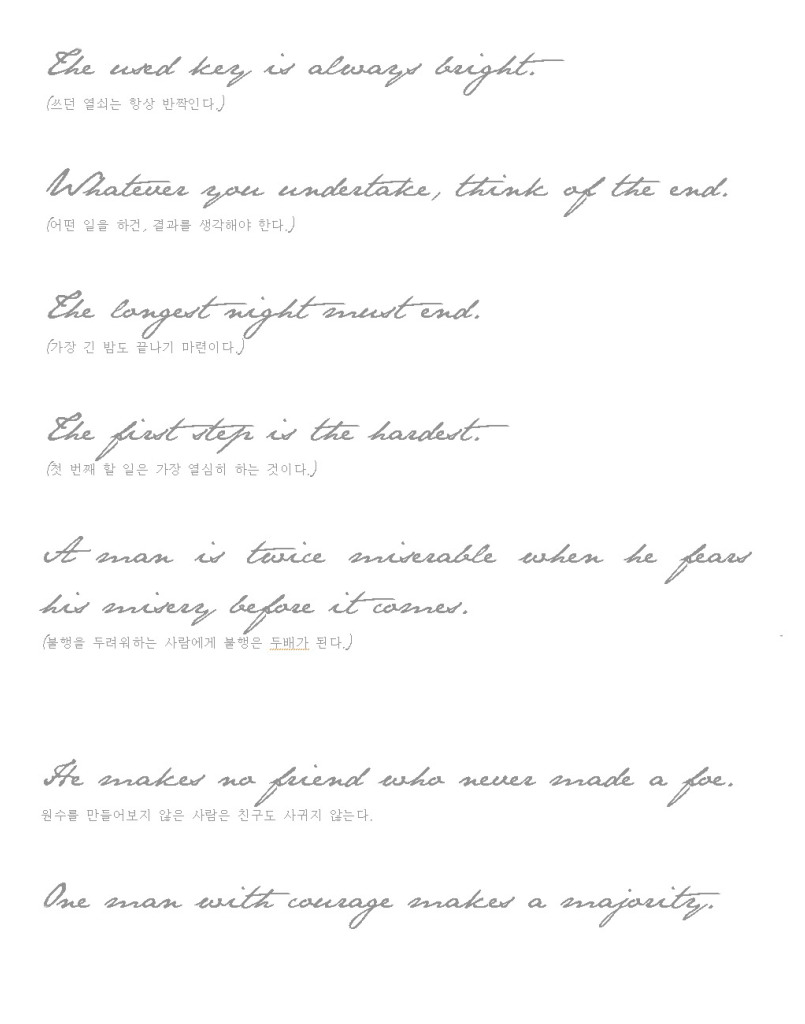 The used key is always bright.
(쓰던 열쇠는 항상 반짝인다.)
Whatever you undertake, think of the end.
(어떤 일을 하건, 결과를 생각해야 한다.)
The longest night must end.
(가장 긴 밤도 끝나기 마련이다.)
The first step is the hardest.
(첫 번째 할 일은 가장 열심히 하는 것이다.)
A man is twice miserable when he fears
his misery before it comes.
(불행을 두려워하는 사람에게 불행은 두배가 된다.)
He makes no friend who never made a foe.
원수를 만들어보지 않은 사람은 친구도 사귀지 않는다.
One man with courage makes a majority.